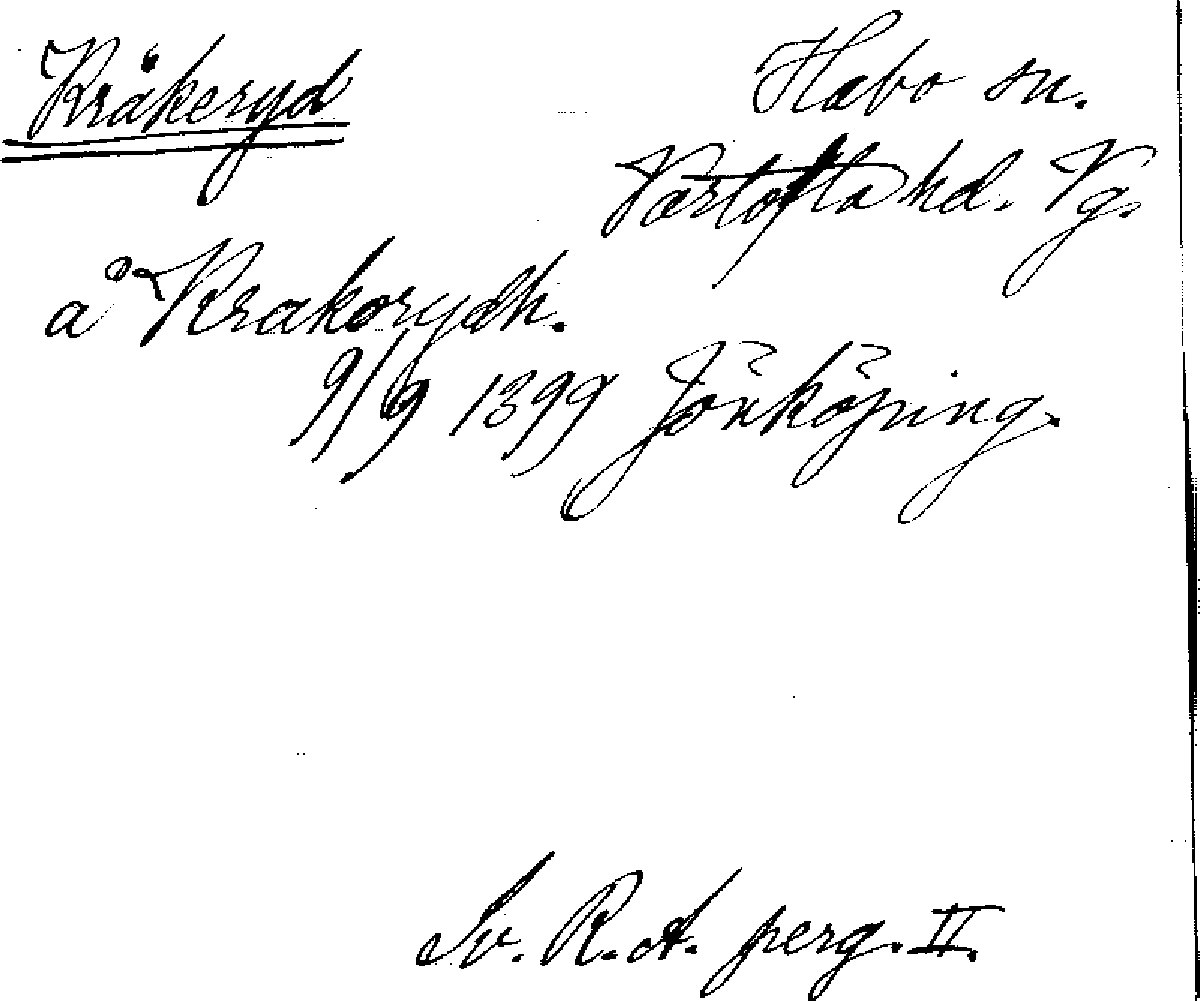 Kråkeryd
Habo sn.
Vartofta hd. Vg.
a Krakorydh.
9/9 1399 Jönköping.
Sv. R.A. perg. II.